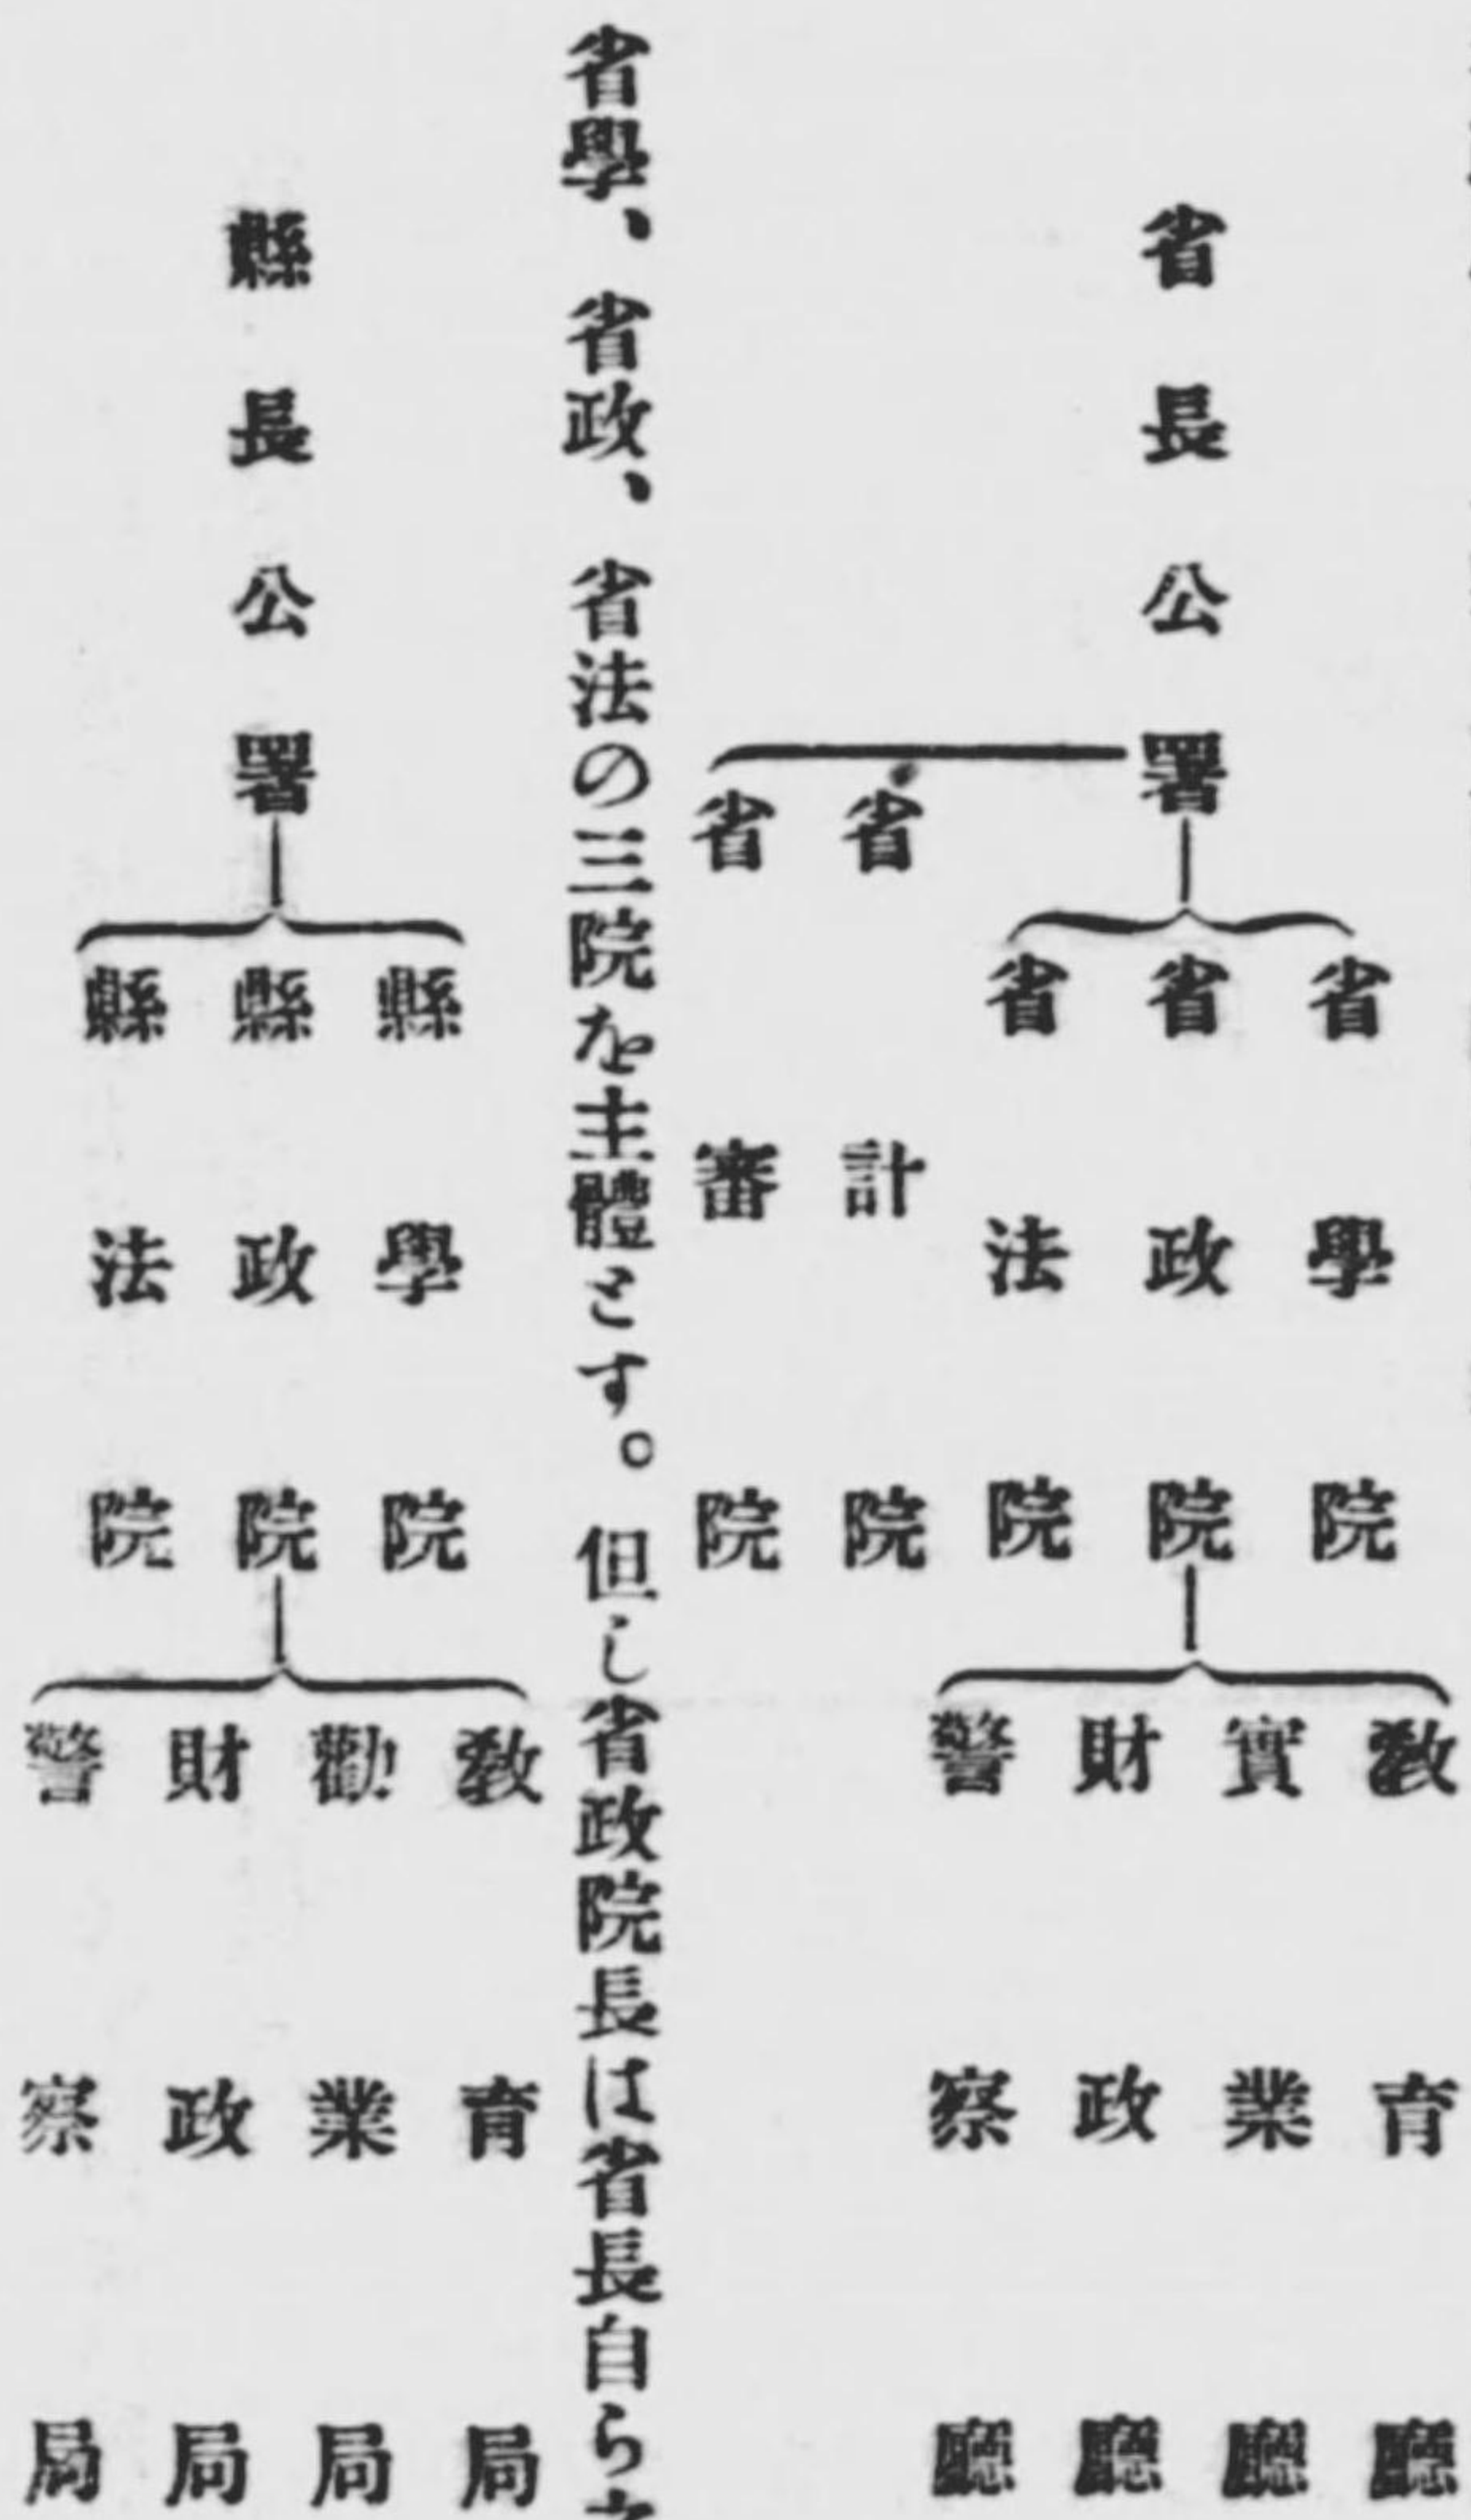 省長公署
省學院
省政院
省法院
教育廳
實業廳
財政廳
警察廳
省計院
省審院
省學、省政、省法の三院を主體とす。但し省政院長は省長自ら
縣長公署
縣學院
縣政院
縣法院
教育局
勸業局
財政局
警察局